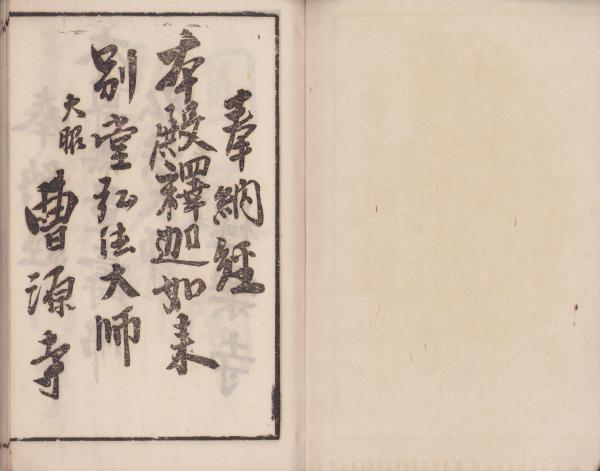 奉納経
本殿釋迦如来
別堂弘法大師
大昭
曹源寺